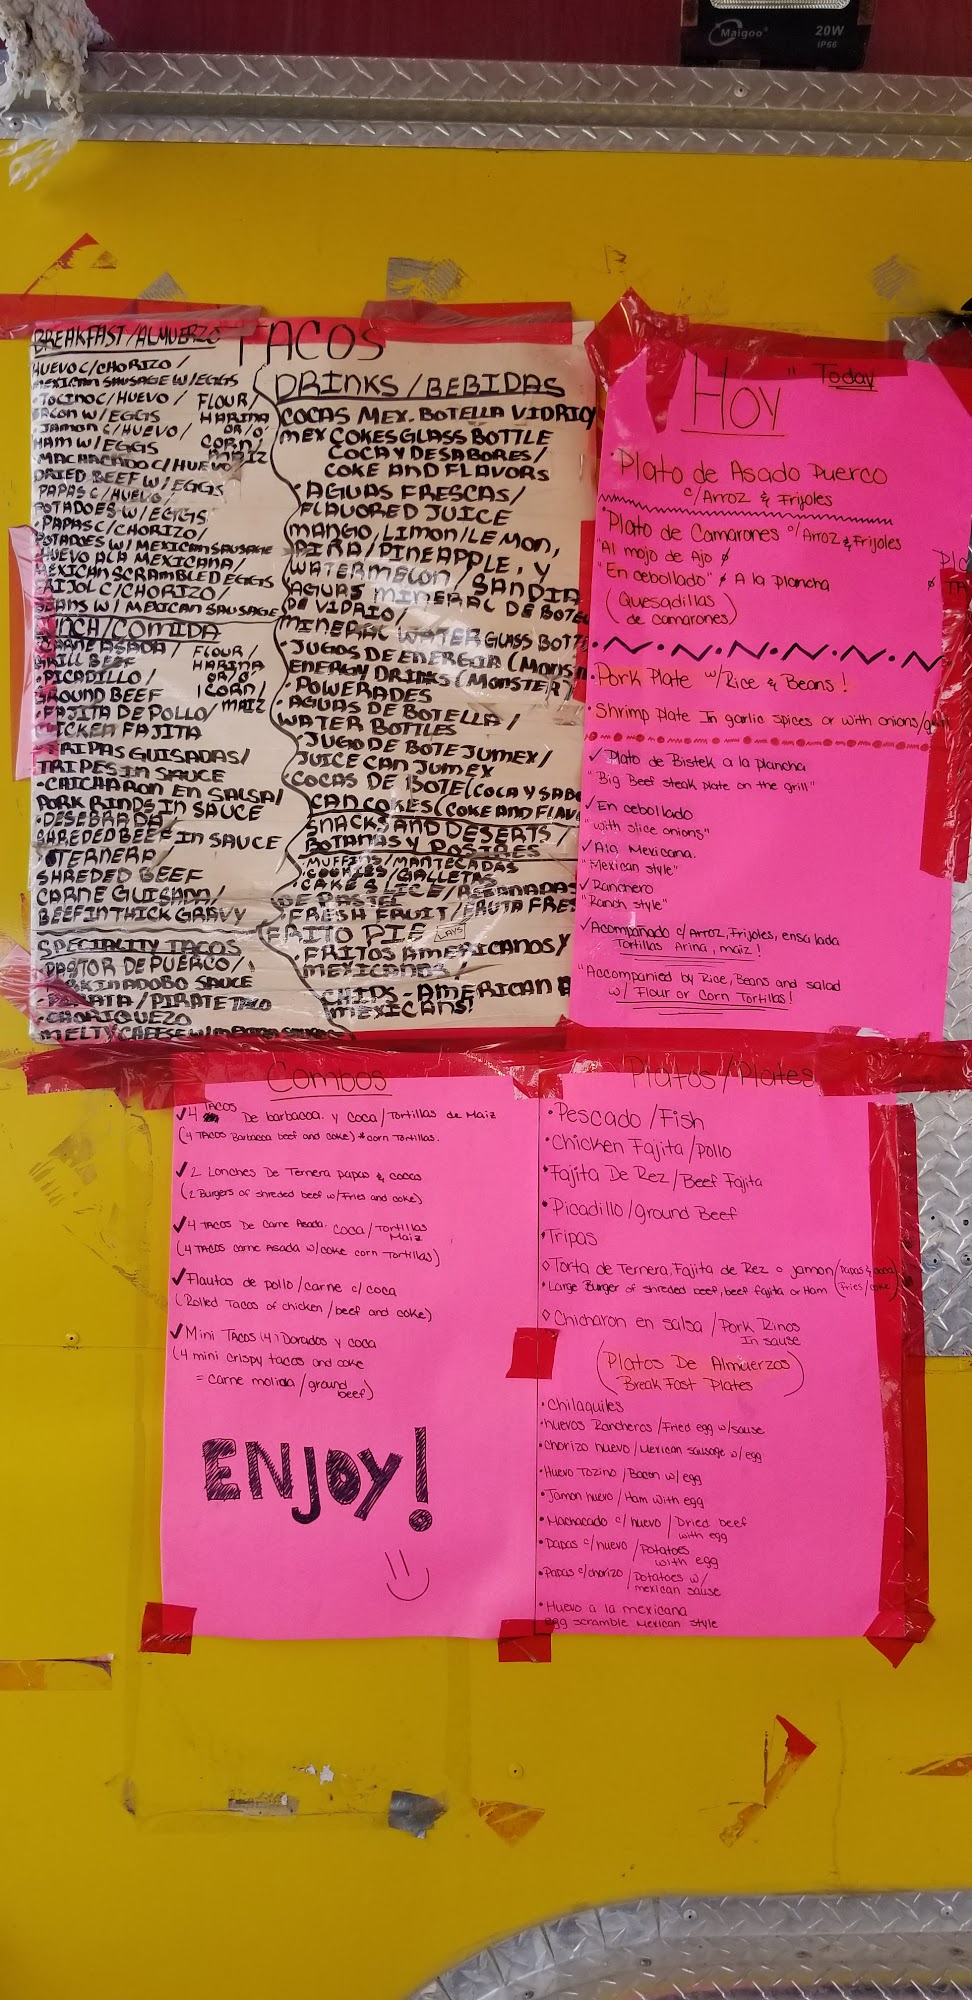 Maigoo
20W
IP66
BREAKFAST/ALMUERZO
TACOS
HUEVO C/CHORIZO/
MEXICAN SAUSAGE W/EGGS
TOCINO C/HUEVO / FLOUR/
BACON W/EGGS HARINA
JAMON C/HUEVO/ OR/O'
HAM W/EGGS CORN/
MACHACADO C/HUEVO MAIZ
DRIED BEEF W/EGGS
PAPAS C/HUEVO/
POTADOES W/EGGS
PAPAS C/CHORIZO/
POTATOES W/MEXICAN SAUSAGE
HUEVO ALA MEXICANA/
MEXICAN SCRAMBLED EGGS
FRIJOL C/CHORIZO/
BEANS W/ MEXICAN SAUSAGE
LUNCH/COMIDA
CARNE ASADA / FLOUR/
GRILL BEEF HARINA
PICADILLO/ OR/O'
GROUND BEEF CORN/
FAJITA DE POLLO/ MAIZ
CHICKEN FAJITA
TRIPAS GUISADAS/
TRIPES IN SAUCE
CHICHARON EN SALSA/
PORK RINDS IN SAUCE
DESEBRADA/
SHREDED BEEF IN SAUCE
TERNERA
SHREDED BEEF
CARNE GUISADA/
BEEF IN THICK GRAVY
SPECIALITY TACOS
PASTOR DE PUERCO/
PORK IN ADOBO SAUCE
PIRATA/PIRATE TACO
CHORIQUEZO
MELTY CHEESE W/MEXICAN SAUSAGE
DRINKS/BEBIDAS
COCAS MEX. BOTELLA VIDRIO
MEX COKES GLASS BOTTLE
COCA Y DESABORES/
COKE AND FLAVORS
AGUAS FRESCAS/
FLAVORED JUICE
MANGO, LIMON/LEMON,
PIRA/PINEAPPLE, Y
WATERMELON/SANDIA
AGUAS MINERAL DE BOTE
DE VIDRIO/
MINERAL WATER GLASS BOTT
JUGOS DE ENERGIA (MONS
ENERGY DRINKS (MONSTER)
POWERADES
AGUAS DE BOTELLA/
WATER BOTTLES
JUGO DE BOTE JUMEX/
JUICE CAN JUMEX
COCAS DE BOTE (COCA Y SAB
CAN COKES (COKE AND FLAV
SNACKS AND DESERTS
BOTANAS Y POSTRES
MUFFINS/MANTECADAS
COOKIES/GALLETAS
CAKE SLICE/REBANADAS
DE PASTEL
FRESH FRUIT/FRUTA FRES
FRITO PIE LAYS
FRITOS AMERICANOS Y
MEXICANOS/
CHIPS - AMERICAN
MEXICANS!
Hoy " Today
Plato de Asado Puerco
c/Arroz & Frijoles
Plato de Camarones c/Arroz & Frijoles
"Al mojo de Ajo
"En cebollado" A la Plancha
(Quesadillas
de camarones)
Pork Plate w/Rice & Beans!
Shrimp Plate In garlic spices or with onions/
✓ Plato de Bistek a la plancha
"Big Beef steak plate on the grill"
✓ En cebollado
"with slice onions"
✓ Ala Mexicana.
"Mexican style"
✓ Ranchero
"Ranch style"
✓ Acompañado c/Arroz, Frijoles, ensalada
Tortillas Arina, maiz!
"Accompanied by Rice, Beans and salad
w/ Flour or Corn Tortillas!
Combos
✓ 4 TACOS De barbacoa y coca/Tortillas de Maiz
(4 TACOS Barbacoa beef and coke) * corn Tortillas.
✓ 2 Lonches De Ternera papas & cocas
(2 Burgers of shreded beef w/Fries and coke)
✓ 4 TACOS De Carne Asada. coca/Tortillas
Maiz
(4 TACOS carne Asada w/coke corn Tortillas)
✓ Flautas de pollo/carne c/coca
(Rolled Tacos of chicken/beef and coke)
✓ Mini Tacos (4) Dorados y coca
(4 mini crispy tacos and coke
= carne molida/ground
beef)
ENJOY!
Platos/Plates
Pescado/Fish
Chicken Fajita/Pollo
Fajita De Rez/Beef Fajita
Picadillo/ground Beef
Tripas
Torta de Ternera, Fajita de Rez o jamon (Papas & coca
Large Burger of shreded beef, beef fajita or Ham (Fries/coke)
Chicharon en salsa/Pork Rinds
In sause
(Platos De Almuerzos
Break Fast Plates)
Chilaquiles
huevos Rancheros/Fried egg w/sause
Chorizo huevo/Mexican sausage w/egg
Huevo Tozino/Bacon w/egg
Jamon huevo/Ham with egg
Machacado c/huevo/Dried beef
with egg
Papas c/huevo/Potatoes
with egg
Papas c/chorizo/Potatoes w/
mexican sause
Huevo a la mexicana
egg scramble Mexican style